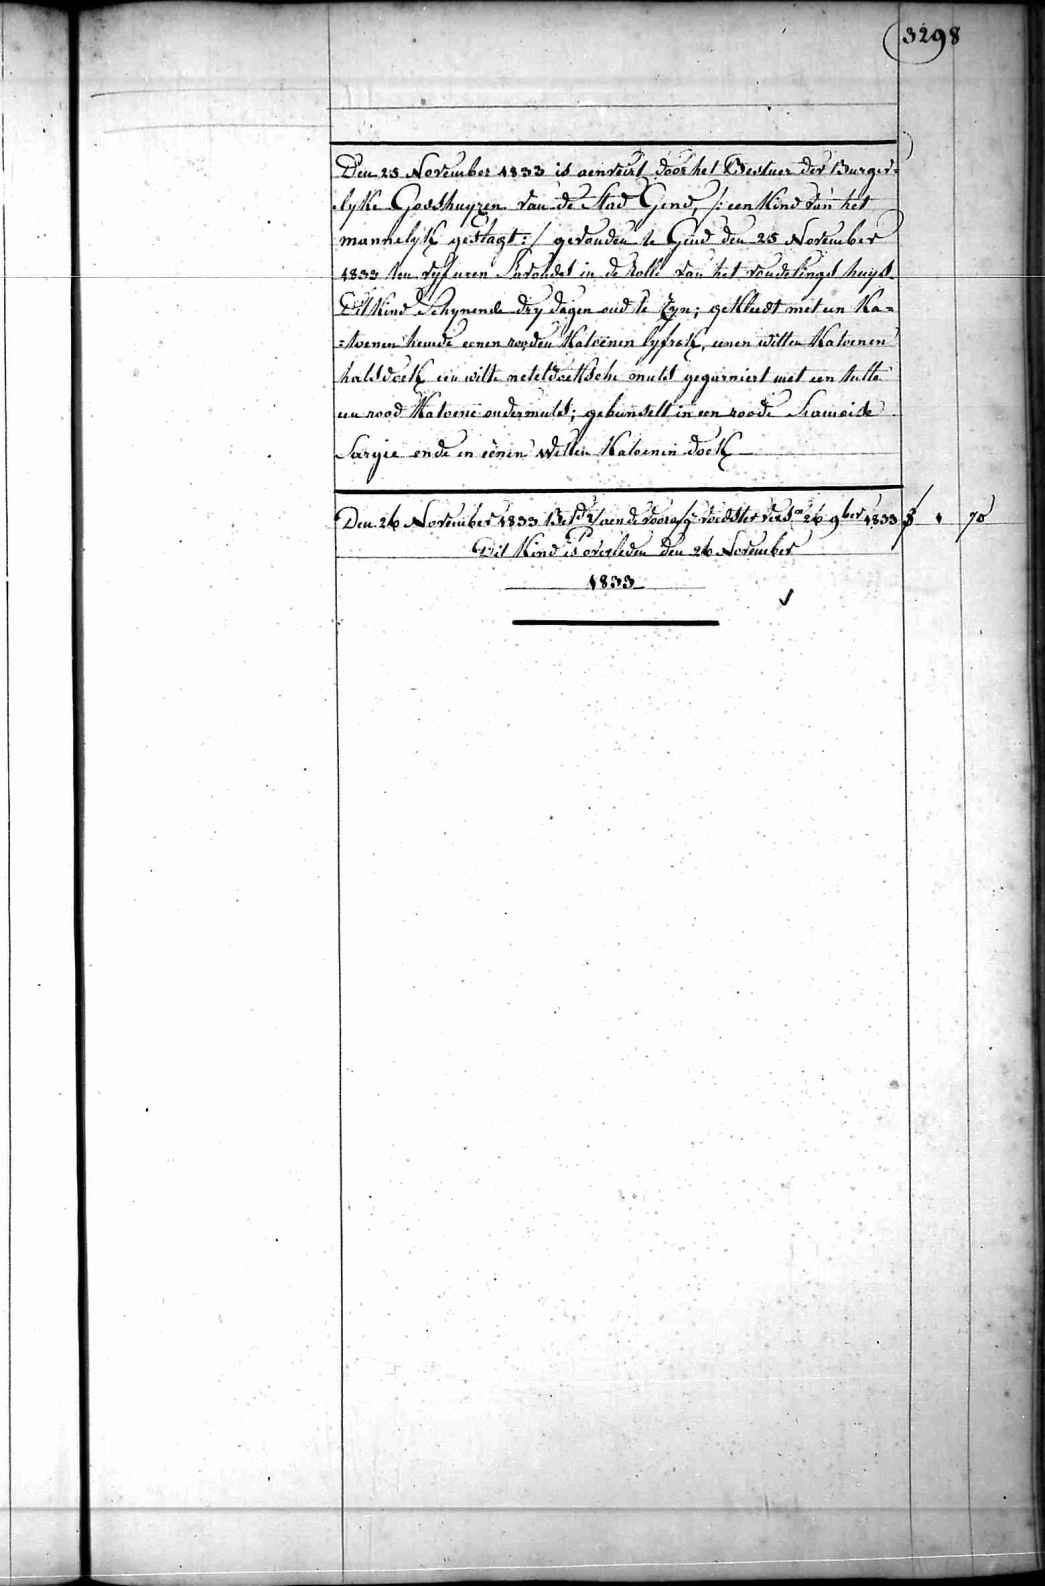 3298
Den 25 November 1833 is aenveirt door het Bestuer der Burger-
lyke Godshuyzen van de Stad Gend, /: een Kind van het
mannelyk geslagt :/ gevonden te Gend den 25 November
1833 ten vyf uren S'avonds in de rolle van het vondelings huys.
Dit Kind Schynende dry dagen oud te zyn; gekleedt met een Ka=
=toenen hemde eenen rooden Katoenen lyfrok, eenen witten Katoenen
halsdoek een witte neteldoeksche muts gegarniert met een tulle
een rood Katoene ondermuts; gebunselt in een roode Siamoise
Sargie ende in eenen witten Katoenen doek
Den 26 November 1833 Bet.d aen de voorz. voedster 26 9ber 1833 70
Dit Kind is overleden den 26 November
1833